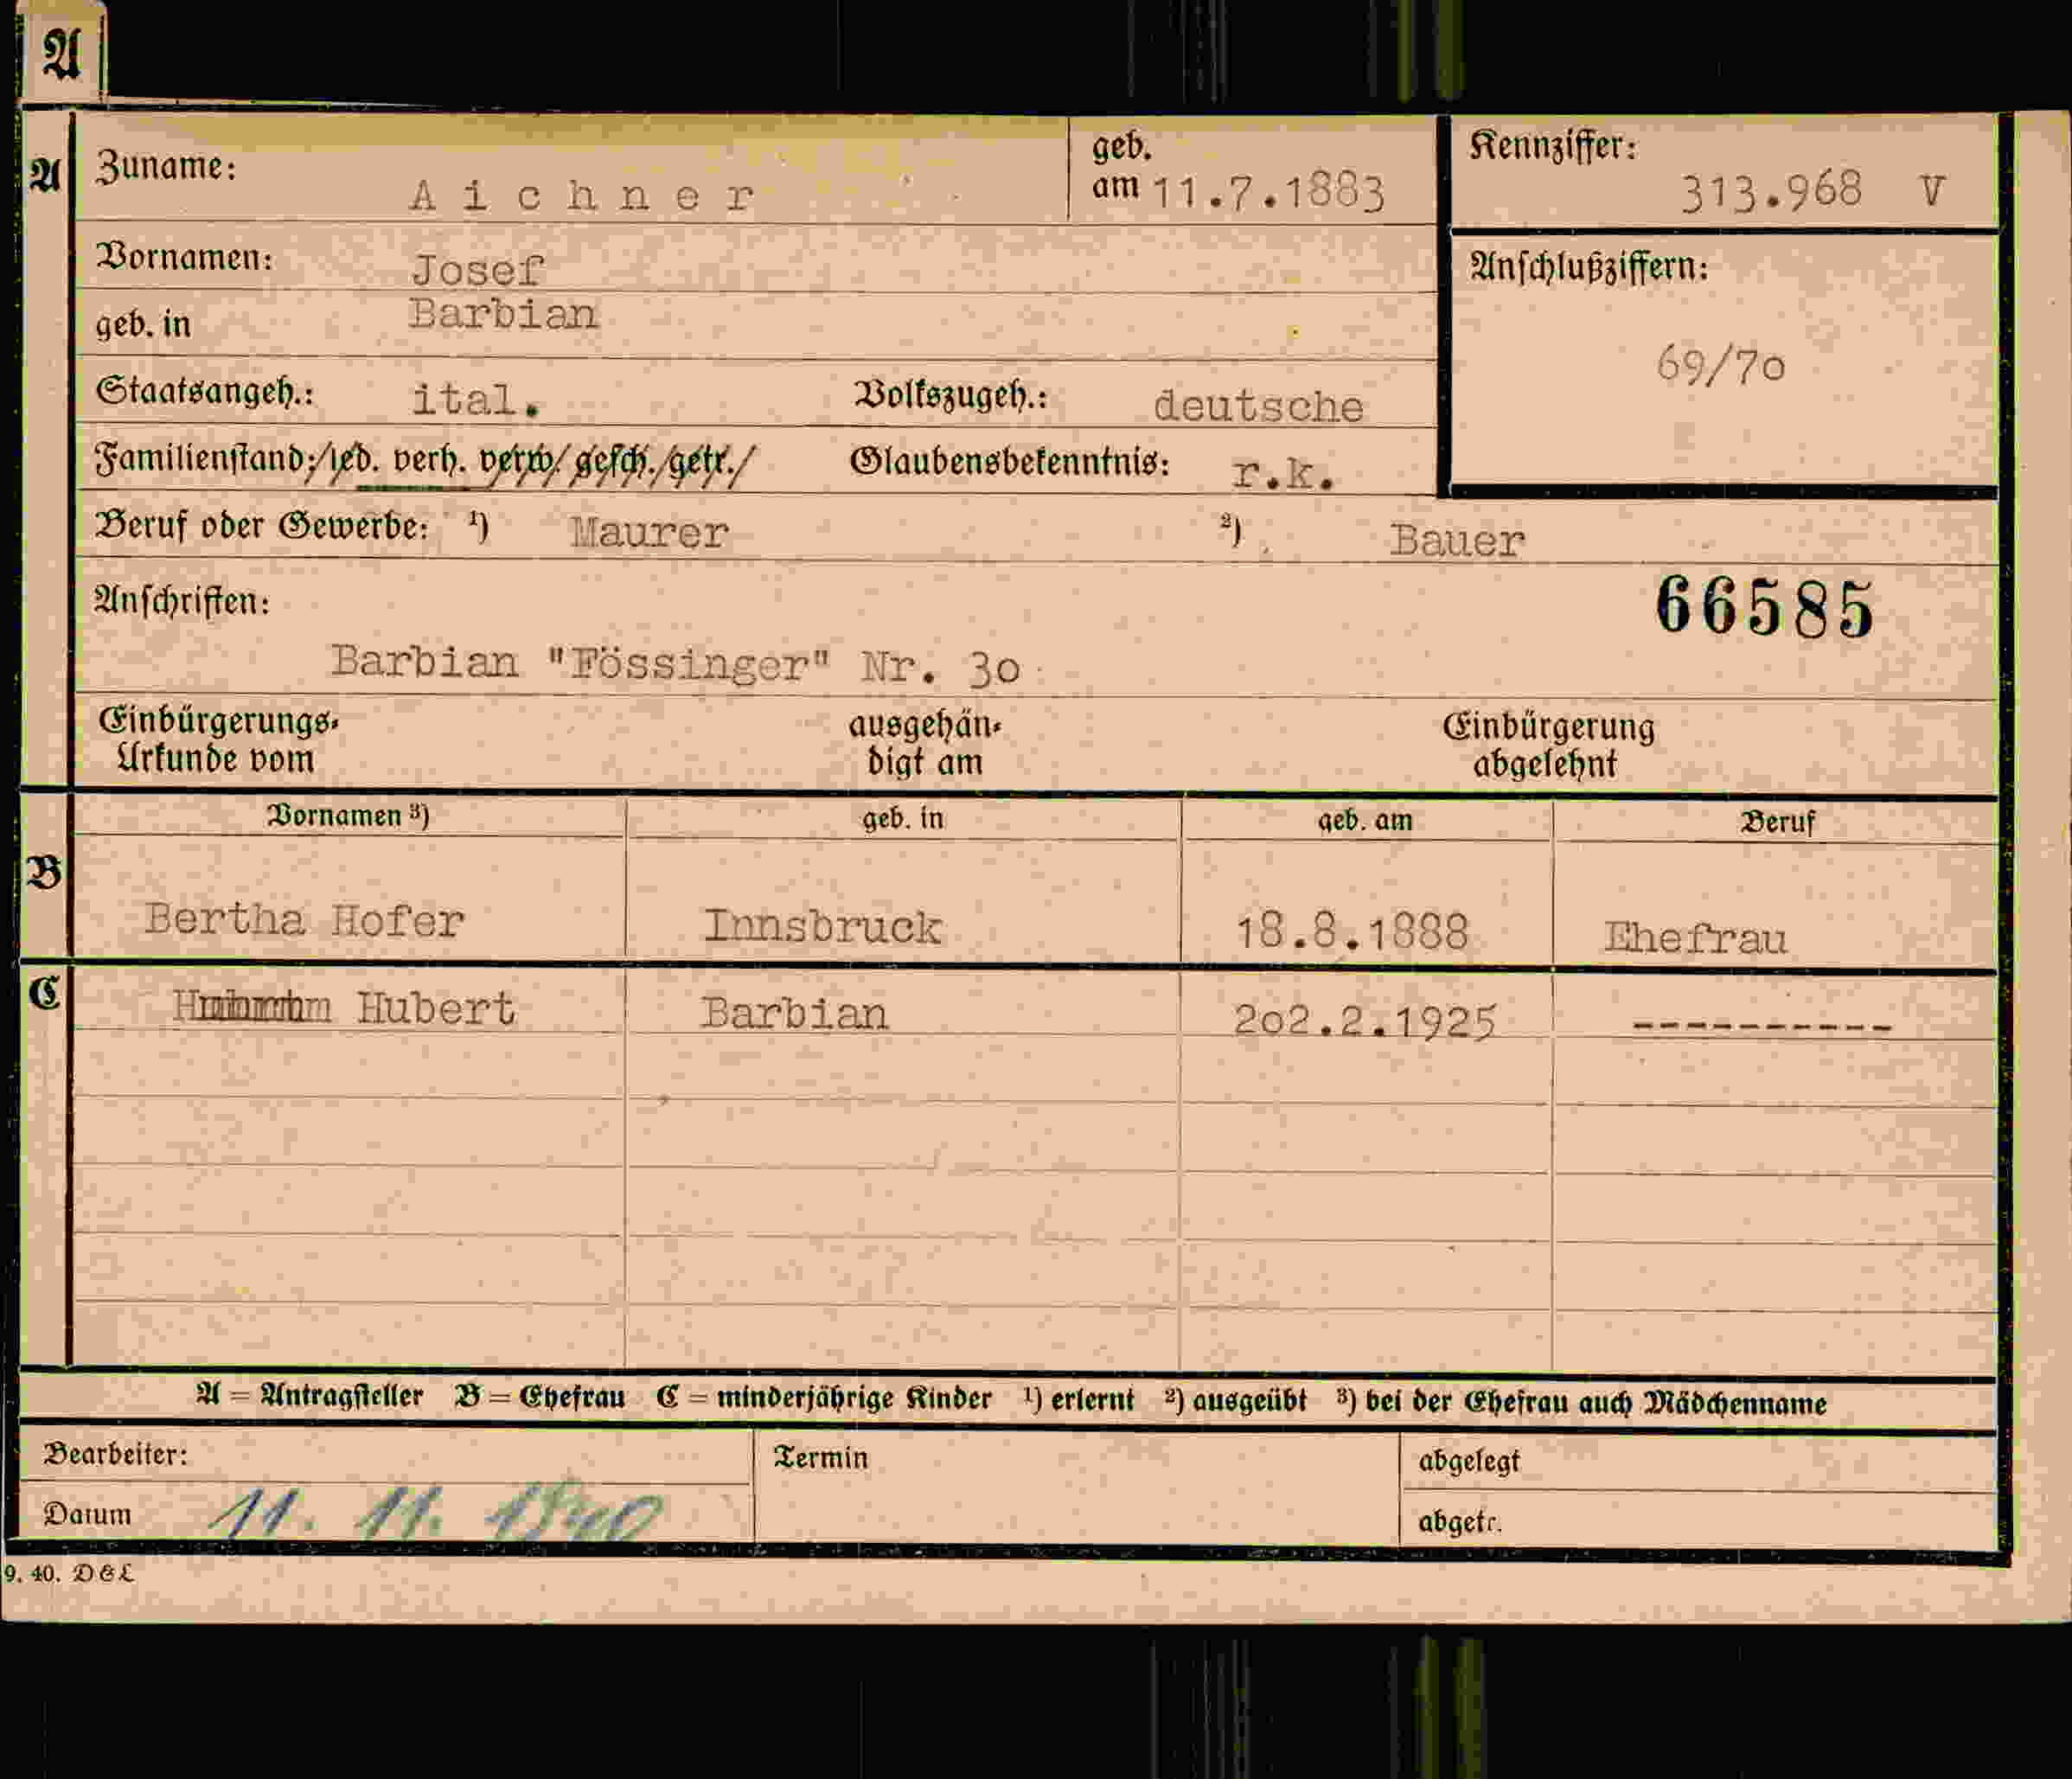 A
A Zuname: Aichner geb. am 11.7.1883 Kennziffer: 313.968 V
Vornamen: Josef Anschlußziffern:
geb. in Barbian
69/70
Staatsangeh.: ital. Volkszugeh.: deutsche
Familienstand: led. verh. verw. gesch. getr. Glaubensbekenntnis: r.k.
Beruf oder Gewerbe: ¹) Maurer ²) Bauer
Anschriften: 66585
Barbian "Fössinger" Nr. 30
Einbürgerungs- ausgehän- Einbürgerung
Urkunde vom digt am abgelehnt
Vornamen ³) geb. in geb. am Beruf
B
Bertha Hofer Innsbruck 18.8.1888 Ehefrau
C Hubert Barbian 202.2.1925 ----------
A = Antragsteller B = Ehefrau C = minderjährige Kinder ¹) erlernt ²) ausgeübt ³) bei der Ehefrau auch Mädchenname
Bearbeiter: Termin abgelegt
Datum 11. 11. 1940 abgetr.
9. 40. DGL